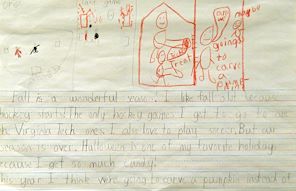 maybe
going
to
carve
a
Fall is a wonderful season. I like fall alot because
hockey starts! The only hockey games I get to go to are
the Virginia tech ones. I also love to play soccer. But our
season is over. Halloween is one of my favorite holidays
because I get so much candy!
This year I think were going to carve a pumpkin instead of